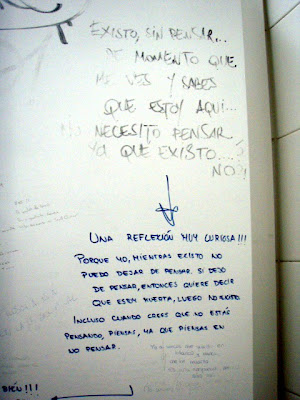 EXISTO, SIN PENSAR...
DE MOMENTO QUE
ME VES Y SABES
QUE ESTOY AQUÍ...
NO NECESITO PENSAR
YA QUE EXISTO....¿
NO?!
UNA REFLEXIÓN MUY CURIOSA!!!
PORQUE YO, MIENTRAS EXISTO NO
PUEDO DEJAR DE PENSAR. SI DEJO
DE PENSAR, ENTONCES QUIERE DECIR
QUE ESTOY MUERTA, LUEGO NO EXISTO.
INCLUSO CUANDO CREES QUE NO ESTÁS
PENSANDO, PIENSAS, YA QUE PIENSAS EN
NO PENSAR.
BIEN!!!